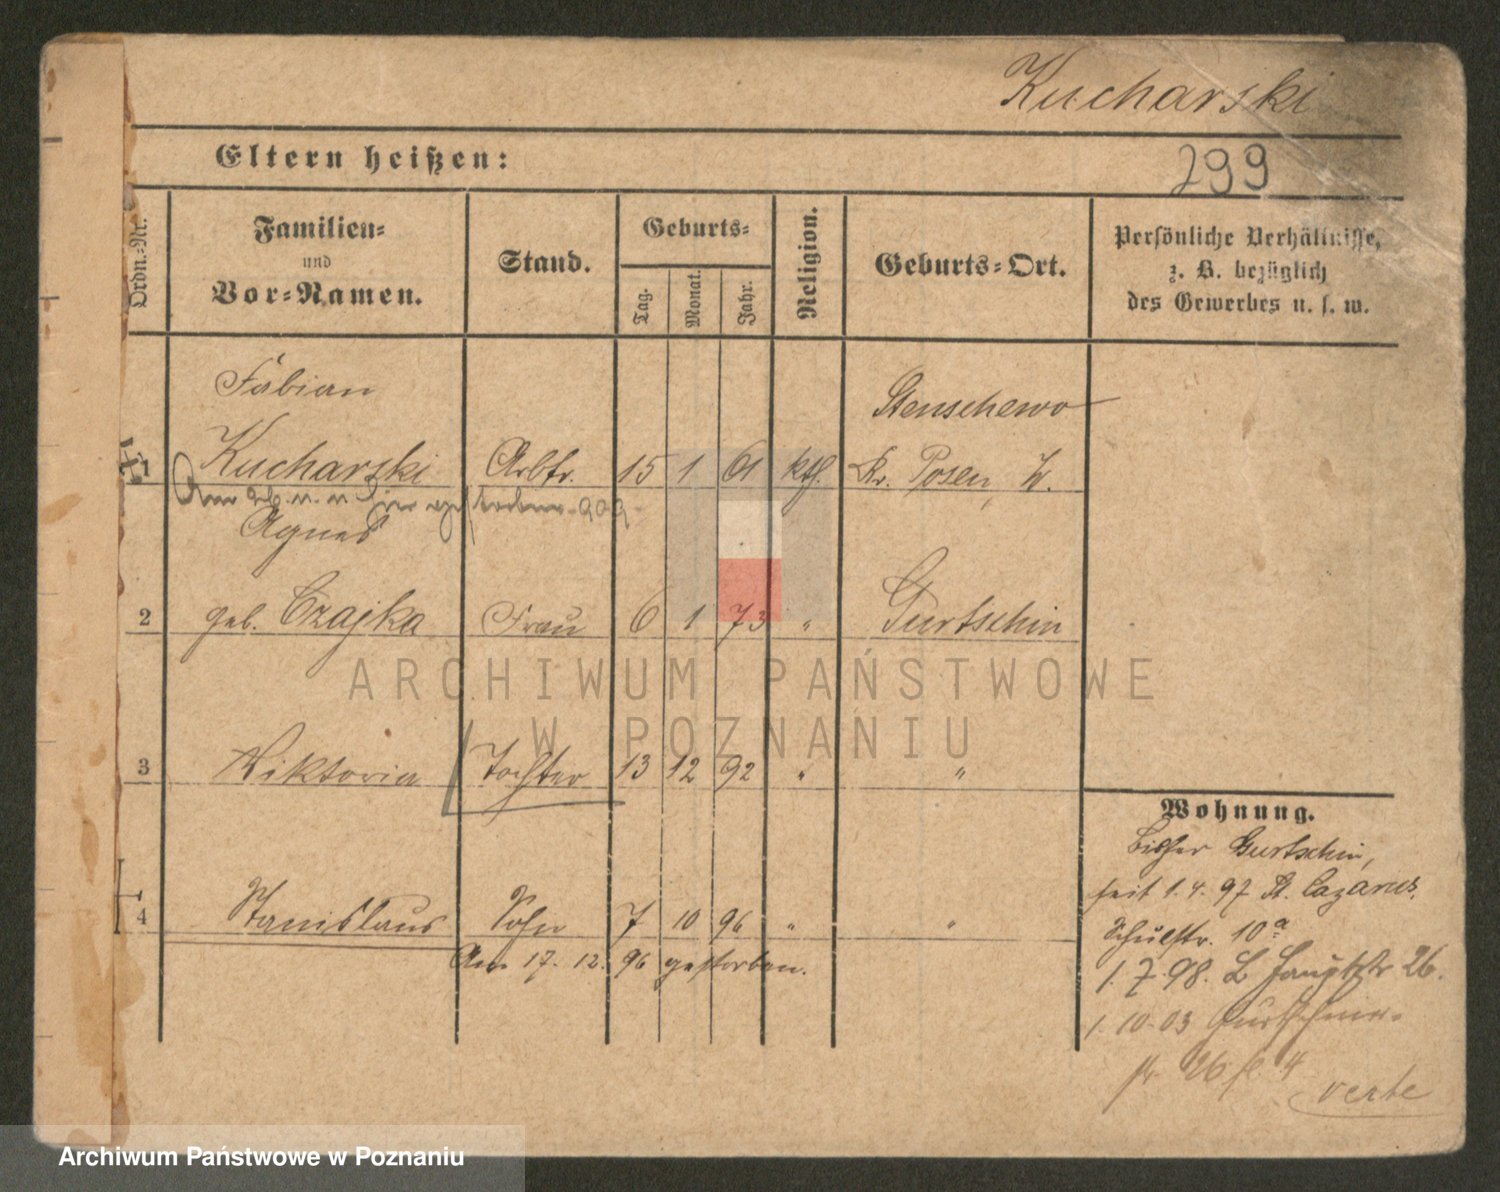 Kucharski
Eltern heißen:
299
Ordn.-Nr.
Familien-
und
Vor-Namen.
Stand.
Geburts-
Tag.
Monat.
Jahr.
Religion.
Geburts-Ort.
Persönliche Verhältnisse,
z. B. bezüglich
des Gewerbes u. s. w.
Fabian
Stenschewo
1 Kucharski Arbtr. 15 1 61 ktl. Kr. Posen, W.
Am gestorben 909
Agnes
2 geb. Czajka Frau 6 1 73 " Gurtschin
3 Wiktoria Tochter 13 12 92 " "
4 Stanislaus Sohn 7 10 96 " "
Am 17. 12. 96 gestorben.
Wohnung.
bisher Gurtschin,
seit 1. 4. 97 St. Lazarus.
Schulstr. 10a
1. 7. 98. L Hauptstr 26.
1. 10. 03 Gurtschiner-
str 26
verte
ARCHIWUM PAŃSTWOWE
W POZNANIU
Archiwum Państwowe w Poznaniu